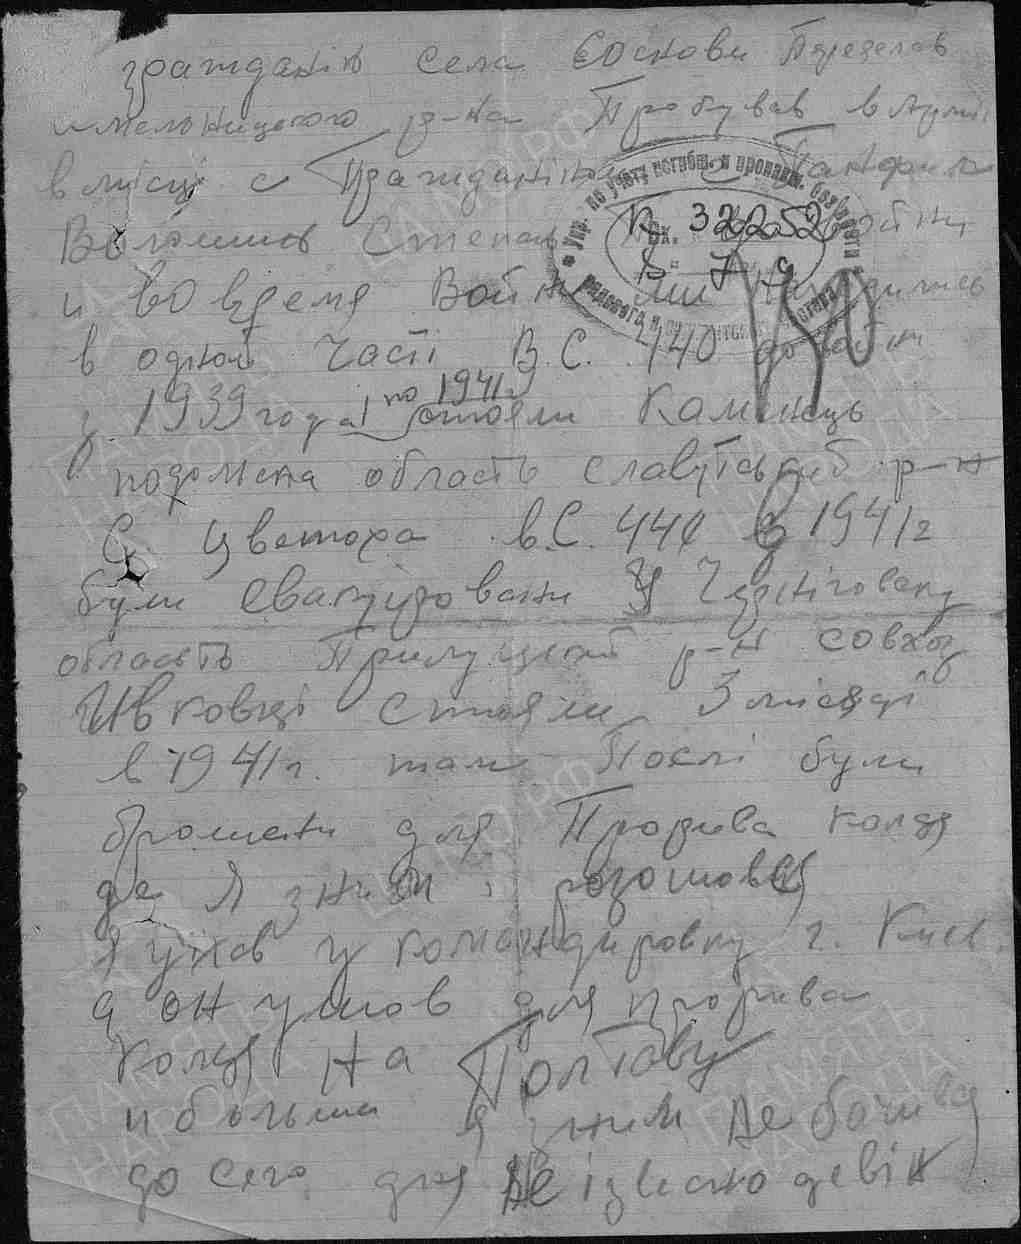 гражданін села Соснови Переяслав
хмельницкого р-на Пробував в Армиі
вмісці с Гражданіном Панфила
Волошин Степан войни
и во время Войни ми находились
в одной Часті В.С. 440 до войни
з 1939 года по 1941г стояли Каминець
подолска область славутский р-н
С. Цветоха в.С. 440 в 1941г
були Евакуіровани У Черніговску
область Прилуцкий р-н совхоз
Ивковці стояли 3 місяці
в 1941г. там Послі були
брошени для Прорива колця
де Я з ним розошовся
Я уихав у командировку г. Киев.
а он ушов для прорива
колця На Полтаву
и больши я з ним не бачився
до сего дня Не ізвесно де він
Упр. по учету погибш. и пропавш. без вести
рядового и сержантского состава
Вх. 32252